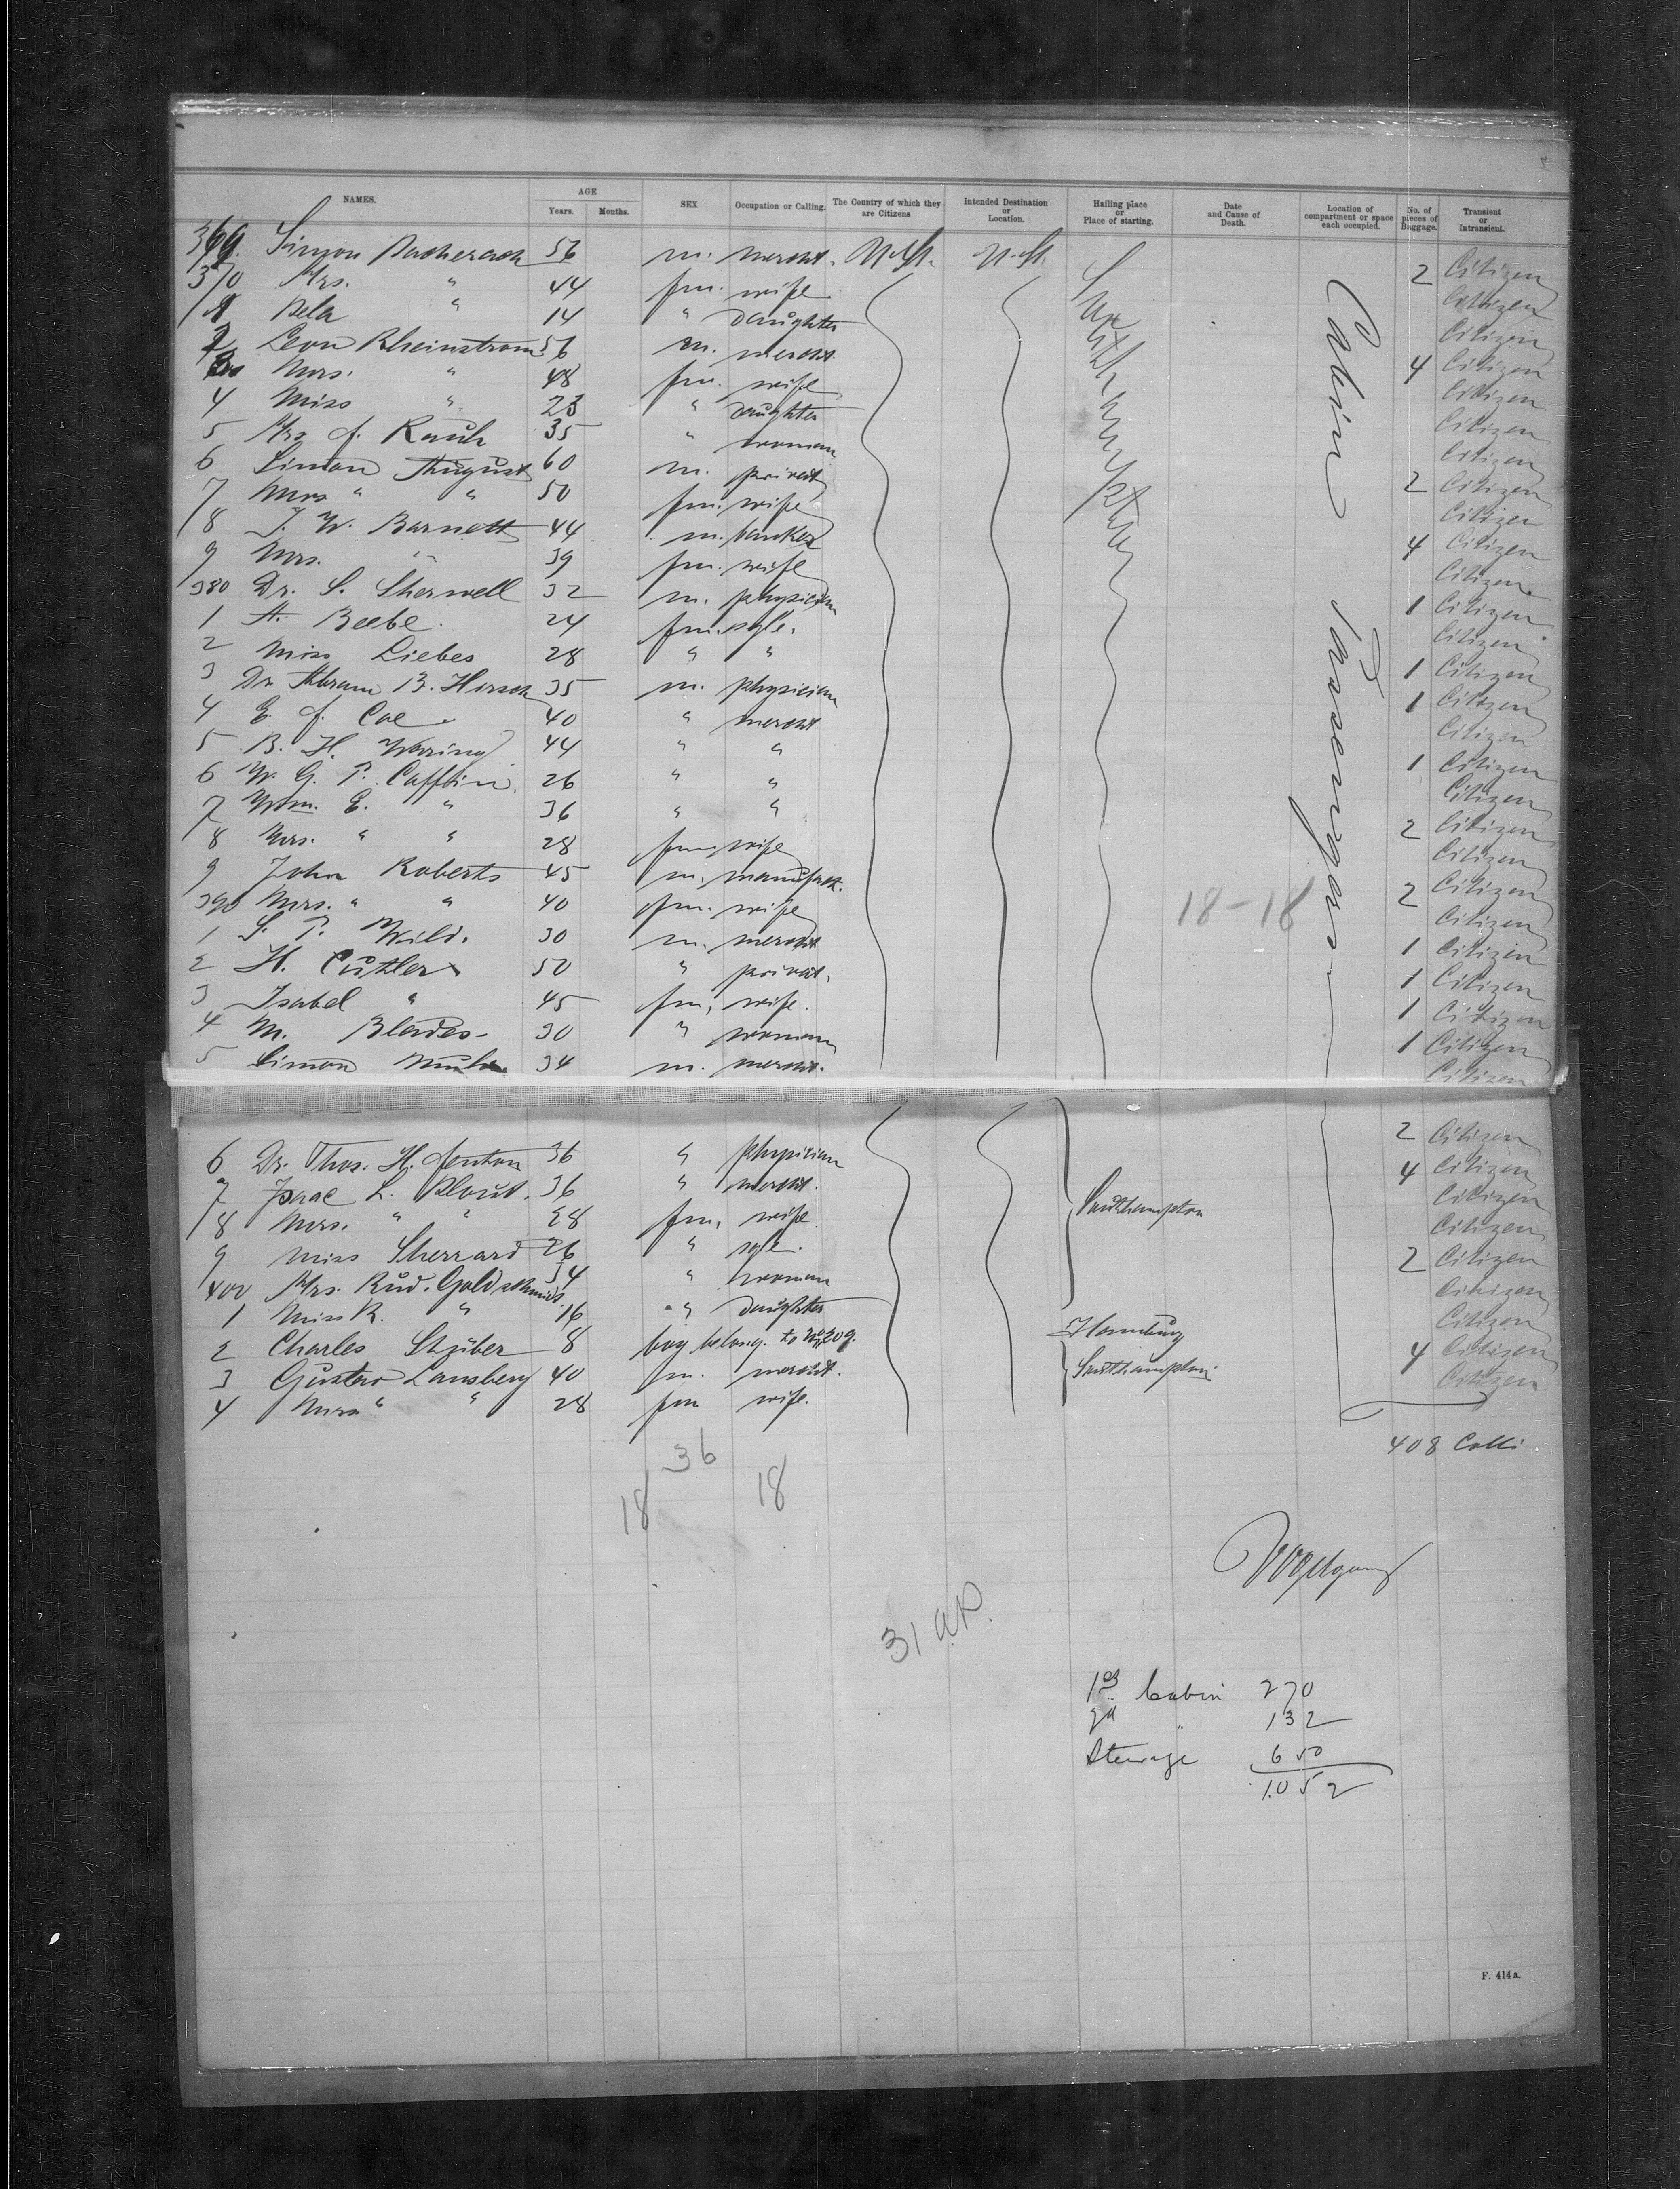 NAMES. AGE Years. Months. SEX Occupation or Calling. The Country of which they are Citizens Intended Destination or Location. Hailing place or Place of starting. Date and Cause of Death. Location of compartment or space each occupied. No. of pieces of Baggage. Transient or Intransient.
369. Simon Bacherach 56 m. mercht. U.St. U.St. Southampton Cabin Passengers 2 Citizen
370 Mrs. " 44 fm. wife Citizen
1 Bela " 14 " daughter Citizen
2 Leon Rheinstrom 56 m. mercht 4 Citizen
3 Mrs. " 48 fm. wife Citizen
4 Miss " 23 " daughter Citizen
5 Mrs J. Rauh 35 " woman Citizen
6 Simon August 60 m. privat 2 Citizen
7 Mrs " " 50 fm. wife Citizen
8 J. W. Barnett 44 m. banker 4 Citizen
9 Mrs. " 39 fm. wife Citizen
380 Dr. S. Sherwell 32 m. physician 1 Citizen
1 A. Beebe. 24 fm. sgle. Citizen
2 Miss Liebes 28 " " 1 Citizen
3 Dr. Abram B. Hirsch 35 m. physician 1 Citizen
4 E. J. Coe 40 " mercht Citizen
5 B. H. Waring 44 " " 1 Citizen
6 W. G. P. Caffin. 26 " " Citizen
7 Wm. E. " 36 " " 2 Citizen
8 Mrs. " " 28 fm. wife Citizen
9 John Roberts 45 m. manufact. 2 Citizen
390 Mrs. " " 40 fm. wife 18-18 Citizen
1 S. P. Wild. 30 m. mercht 1 Citizen
2 H. Cutler 50 " privat. 1 Citizen
3 Isabel " 45 fm, wife. 1 Citizen
4 M. Blades 30 " woman 1 Citizen
5 Simon 34 m. mercht. Citizen
6 Dr. Thos. H. Fenton 36 " physician 2 Citizen
7 Isaac L. Blout. 36 " mercht. 4 Citizen
8 Mrs. " " 28 fm, wife Southampton Citizen
9 Miss Sherrard 26 " sgle. Citizen
400 Mrs. Rud. Goldschmidt 34 " woman 2 Citizen
1 Miss R. " 16 " daughter Citizen
2 Charles Stüber 8 boy belong. to No. 209. Hamburg Citizen
3 Gustav Lansberg 40 m. mercht. Southampton 4 Citizen
4 Mrs " " 28 fm wife. Citizen
408 Colli
36
18 18
31 a.p.
1st Cabin 270
2d " 132
Steerage 650
1052
F. 414a.